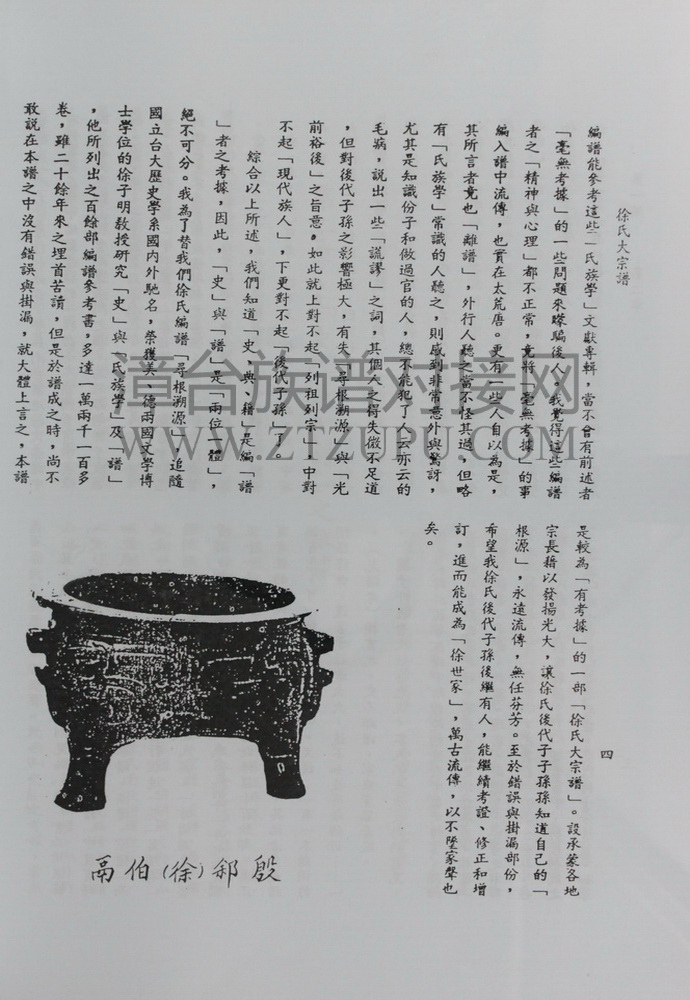 徐氏大宗譜
編譜能參考這些「氏族學」文獻專輯，當不會有前述者
「毫無考據」的一些問題來矇騙後人。我覺得這些編譜
者之「精神與心理」都不正常，竟將「毫無考據」的事
編入譜中流傳，也實在太荒唐。更有一些人自以為是，
其所言者竟也「離譜」，外行人聽之當不怪其過，但略
有「氏族學」常識的人聽之，則感到非常意外與驚訝，
尤其是知識份子和做過官的人，總不能犯了人云亦云的
毛病，說出一些「謊謬」之詞，其個人之得失微不足道
，但對後代子孫之影響極大，有失「尋根溯源」與「光
前裕後」之旨意。如此就上對不起「列祖列宗」，中對
不起「現代族人」，下更對不起「後代子孫」了。
綜合以上所述，我們知道「史、典、籍」是編「譜
」者之考據，因此，「史」與「譜」是「兩位一體」，
絕不可分。我為了替我們徐氏編譜「尋根溯源」，追隨
國立台大歷史學系國內外馳名，榮獲美、德兩國文學博
士學位的徐子明教授研究「史」與「氏族學」及「譜」
，他所列出之百餘部編譜參考書，多達一萬兩千一百多
卷，雖二十餘年來之埋首苦讀，但是於譜成之時，尚不
敢說在本譜之中沒有錯誤與掛漏，就大體上言之，本譜
是較為「有考據」的一部「徐氏大宗譜」。設承蒙各地
宗長藉以發揚光大，讓徐氏後代子子孫孫知道自己的「
根源」，永遠流傳，無任芬芳。至於錯誤與掛漏部份，
希望我徐氏後代子孫後繼有人，能繼續考證、修正和增
訂，進而能成為「徐世家」，萬古流傳，以不墜家聲也
矣。
四
鬲伯(徐)郐殷
漳台族谱对接网
WWW.ZTZUPU.COM